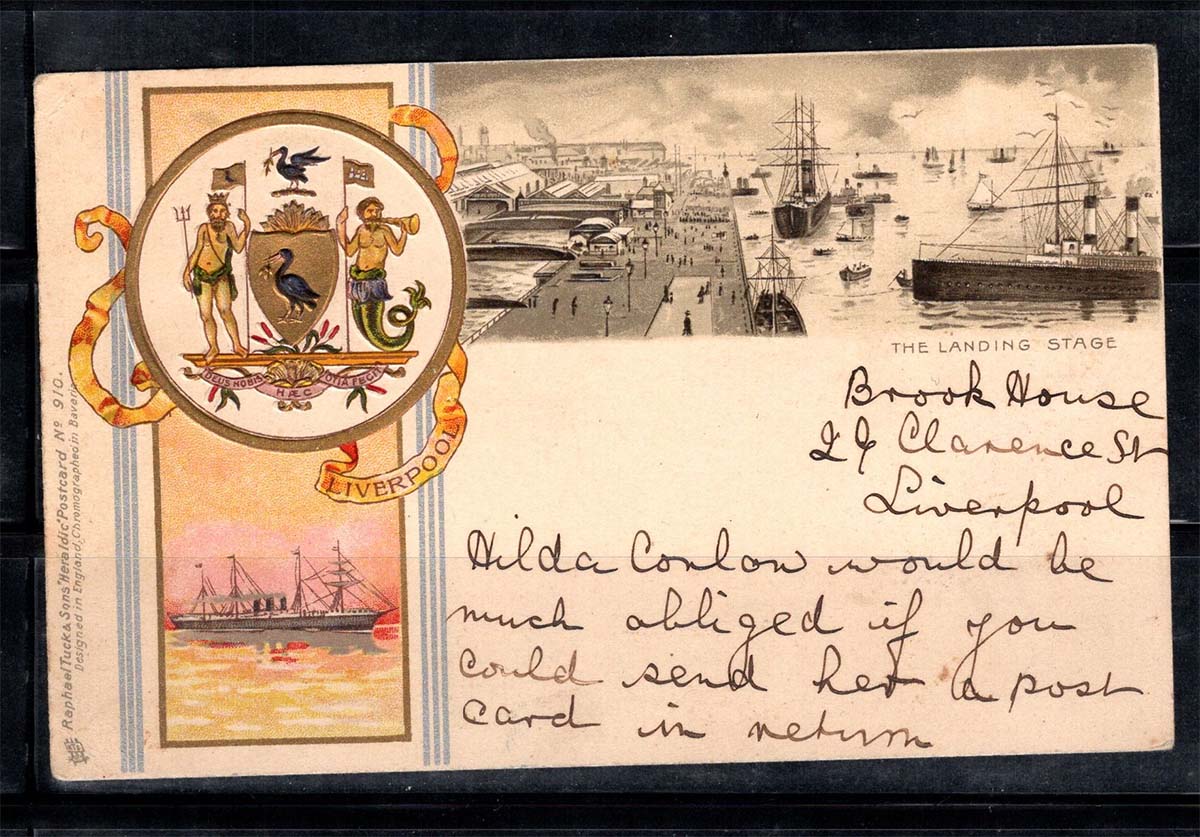 Raphael Tuck & Sons' "Heraldic" Postcard No 910.
Designed in England, Chromographed in Bavaria
DEUS NOBIS HÆC OTIA FECIT
LIVERPOOL
THE LANDING STAGE
Brook House
29 Clarence St
Liverpool
Hilda Conlon would be
much obliged if you
could send her a post
card in return